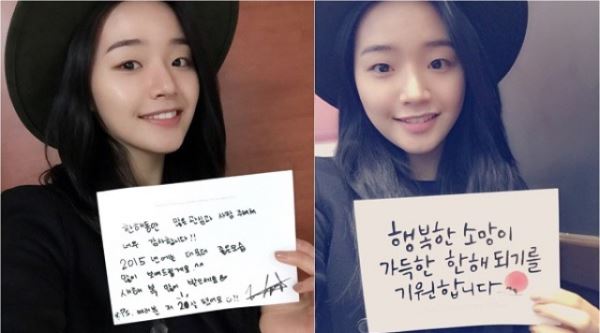 한해동안 많은 관심과 사랑 주셔서
너무 감사합니다!!
2015년에는 더욕더 좋은모습
많이 보여드릴게요 ^^
새해 복 많이 받으세요
P.S. 여러분 저 20살 됐어요 ☺!!
행복한 소망이
가득한 한해 되기를
기원합니다